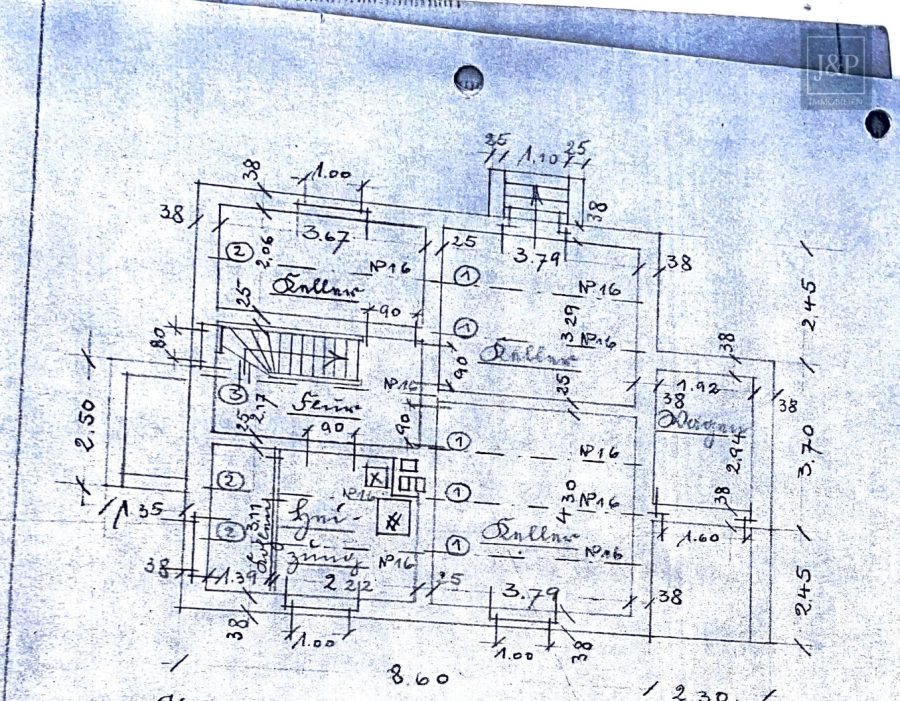 J&P
IMMOBILIEN
25 1.10 25
38 1.00
38
38
3.67
25
3.79
38
2 2.06 NP16
Keller
1 NP16
2.45
25 90
3.29
1 NP16
Keller
38
80
90
NP16
25
1.92
38
38
3
2.17
Flur
Wagen
2.50
25
90
90
1
NP16
2.94
3.70
2
NP16
1
4.30
NP16
38
1.35
2
3.11
Hei-
zung
Keller
1.60
NP16
1
NP16
38
1.39
2.22
25
3.79
38
2.45
38
1.00
1.00
38
8.60
2.30